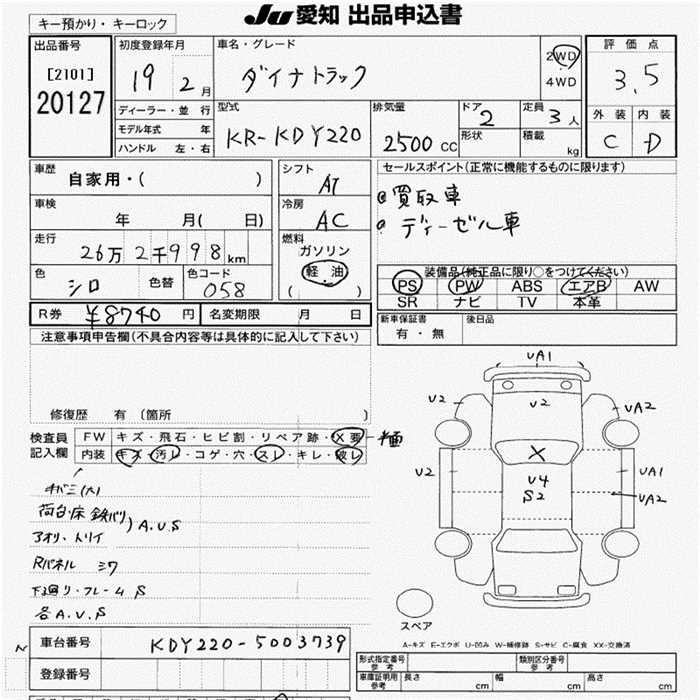 Ju 愛知 出品申込書
キー預かり・キーロック
出品番号
[2101]
20127
初度登録年月
19 2月
ディーラー・並 行
モデル年式 年
ハンドル 左・右
車名・グレード
ダイナトラック
2WD
4WD
評価点
3.5
外装 内装
C D
型式
KR-KDY220
排気量
2500 CC
ドア
2
形状
定員
3人
積載
kg
車歴
自家用・( )
車検
年 月( 日)
走行
26万2千998km
色
シロ
色替
色コード
058
シフト
AT
冷房
AC
燃料
ガソリン
軽油
( )
セールスポイント(正常に機能するものに限ります)
買取車
ディーゼル車
装備品(純正品に限り○をつけてください)
PS PW ABS エアB AW
SR ナビ TV 本革
R券 ¥8740円 名変期限 月 日
新車保証書
有・無
後日品
注意事項申告欄(不具合内容等は具体的に記入して下さい)
修復歴 有 〔箇所 〕
検査員
記入欄
FW キズ・飛石・ヒビ割・リペア跡・X要
内装 キズ・汚レ・コゲ・穴・スレ・キレ・破レ
荷台・床 鉄バリ
アオリ・トリイ
A.U.S
Rパネル
下廻り・フレーム S
各A.U.S
UA1
U2
U2
UA2
X
U2
U4
S2
UA1
UA2
スペア
A-キズ E-エクボ U-凹み W-補修跡 S-サビ C-腐食 XX-交換済
車台番号 KDY220-5003739
登録番号
N
形式指定番号
参考
類別区分番号
参考
車庫証明用
参考
長さ cm 幅 cm 高さ cm